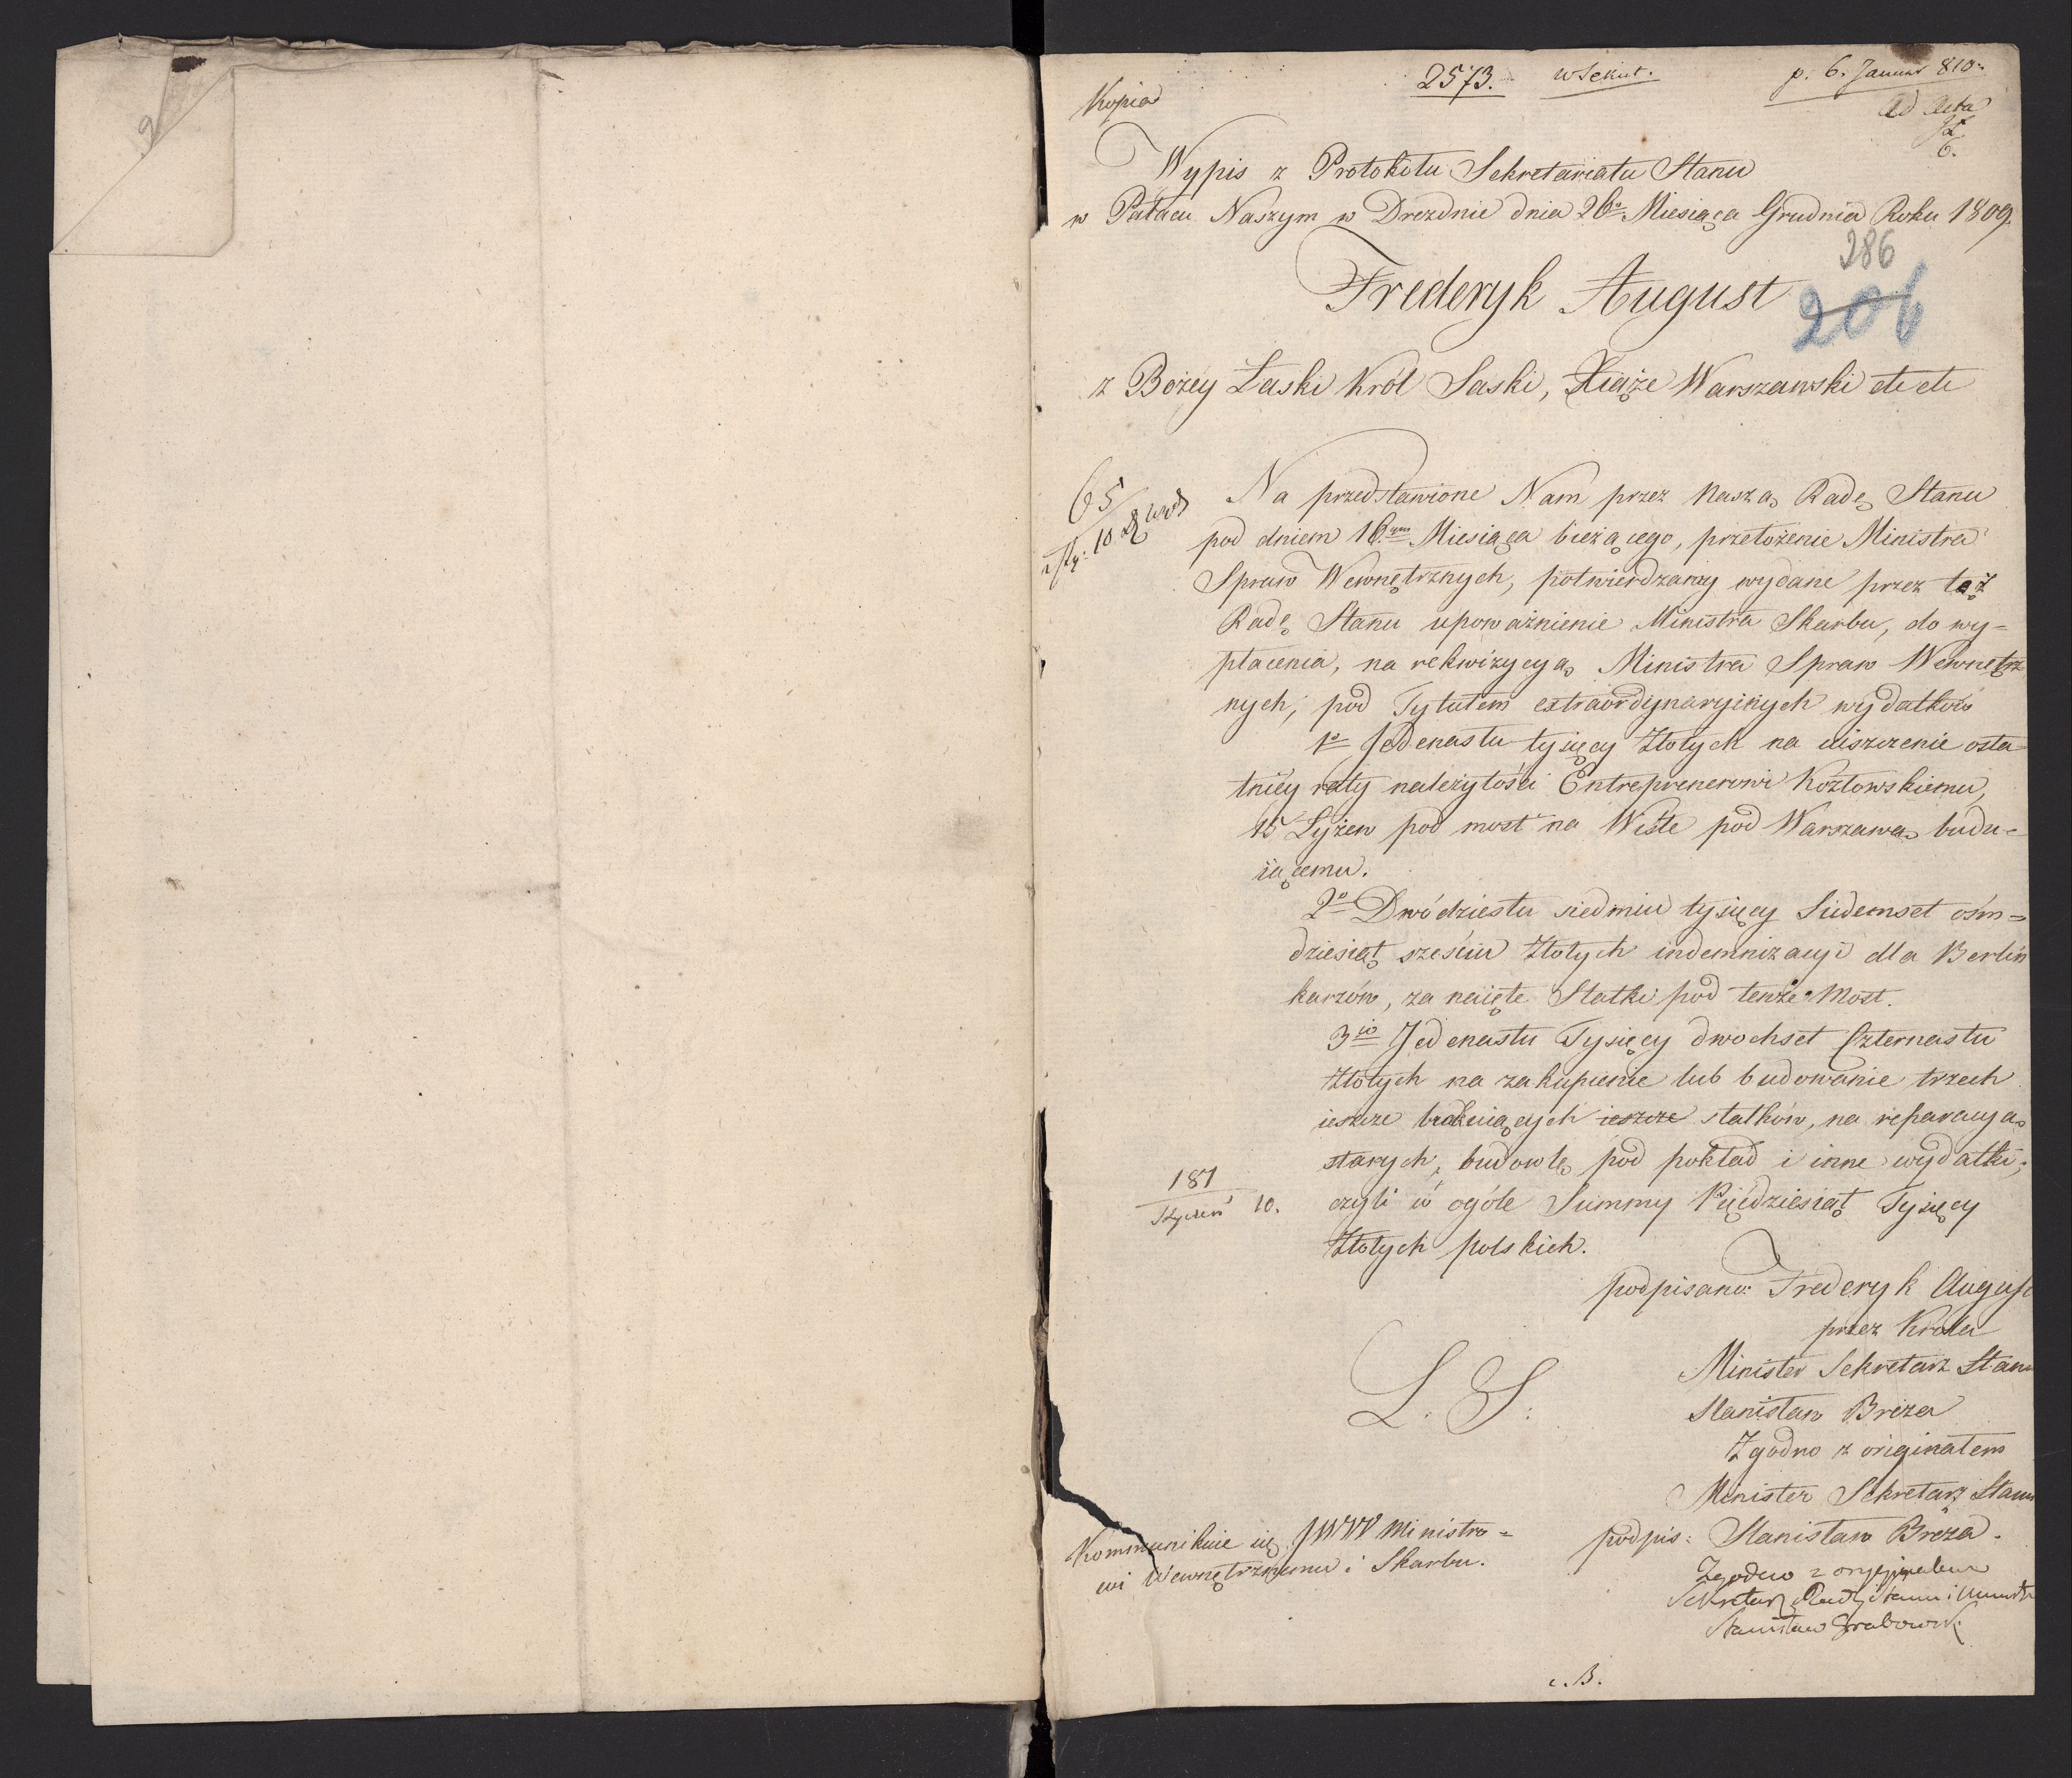 9
Kopia
2573.
p. 6. Januar 810.
Ad Acta
6.
Wypis z Protokółu Sekretariatu Stanu
w Pałacu Naszym w Dreznie dnia 26º Miesiąca Grudnia Roku 1809.
286
206
Frederyk August
z Bożey Łaski Król Saski, Xiąże Warszawski etc etc
65
Na przedstawione Nam przez Naszą Radę Stanu
pod dniem 16ym Miesiąca bieżącego, przełożenie Ministra
Spraw Wewnętrznych, potwierdzamy wydane przez też
Radę Stanu upoważnienie Ministra Skarbu, do wy=
płacenia, na rekwizycyą Ministra Spraw Wewnętrz
nych, pod Tytułem extraordynaryinych wydatków
1º Jedenastu tysięcy Złotych na uiszczenie osta=
tniey raty należytości Entreprenerowi Kozłowskiemu,
15 Łyżew pod most na Wiśle pod Warszawą budu=
iącemu.
2º Dwódziestu siedmiu tysięcy Siedemset ośm=
dziesiąt sześciu Złotych indemnizacyi dla Berlin
karzów, za naięte Statki pod tenże Most.
3io Jedenastu Tysięcy dwochset Czternastu
Złotych na zakupienie lub budowanie trzech
ieszcze brakuiących ieszcze statków, na reparacyą
starych, budowlę pod pokład i inne wydatki;
181
Styczeń 10.
czyli w ogóle Summy Pięćdziesiąt Tysięcy
Złotych polskich.
podpisano: Frederyk August
przez Króla
L. S.
Minister Sekretarz Stanu
Stanisław Breza
Zgodno z originałem
Minister Sekretarz Stanu
podpis: Stanisław Breza.
Kommunikuie się JWW Ministro=
wi Wewnętrznemu i Skarbu.
Zgodno z oryginałem
Sekretarz Rady Stanu i Ministr
Stanisław Grabowski
c. B.